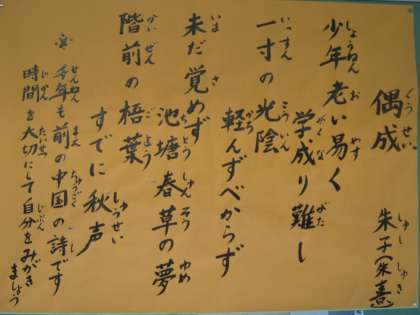 偶成
ぐうせい
朱子(朱熹)
しゅし しゅき
少年老い易く
しょうねん お やす
学成り難し
がく な がた
一寸の光陰
いっすん こういん
軽んずべからず
かろ
未だ覚めず
いま さ
池塘春草の夢
ちとう しゅんそう ゆめ
階前の梧葉
かいぜん ごよう
すでに秋声
しゅうせい
※千年も前の中国の詩です
せんねん まえ ちゅうごく し
時間を大切にして自分をみがきましょう
じかん たいせつ じぶん